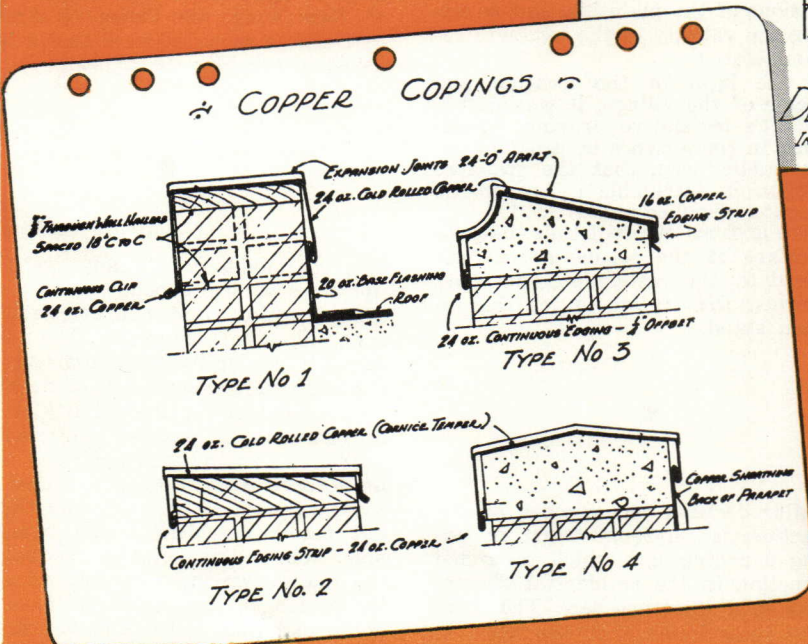 COPPER COPINGS
EXPANSION JOINTS 24'-0" APART
24 OZ. COLD ROLLED COPPER
THROUGH WALL NAILERS
SPACED 18" C TO C
CONTINUOUS CLIP
24 OZ. COPPER
20 OZ. BASE FLASHING
ROOF
TYPE No 1
16 OZ. COPPER
EDGING STRIP
24 OZ. CONTINUOUS EDGING - ¼" OFFSET
TYPE No 3
24 OZ. COLD ROLLED COPPER (CORNICE TEMPER)
CONTINUOUS EDGING STRIP - 24 OZ. COPPER
TYPE No. 2
COPPER SHEATHING
BACK OF PARAPET
TYPE No 4